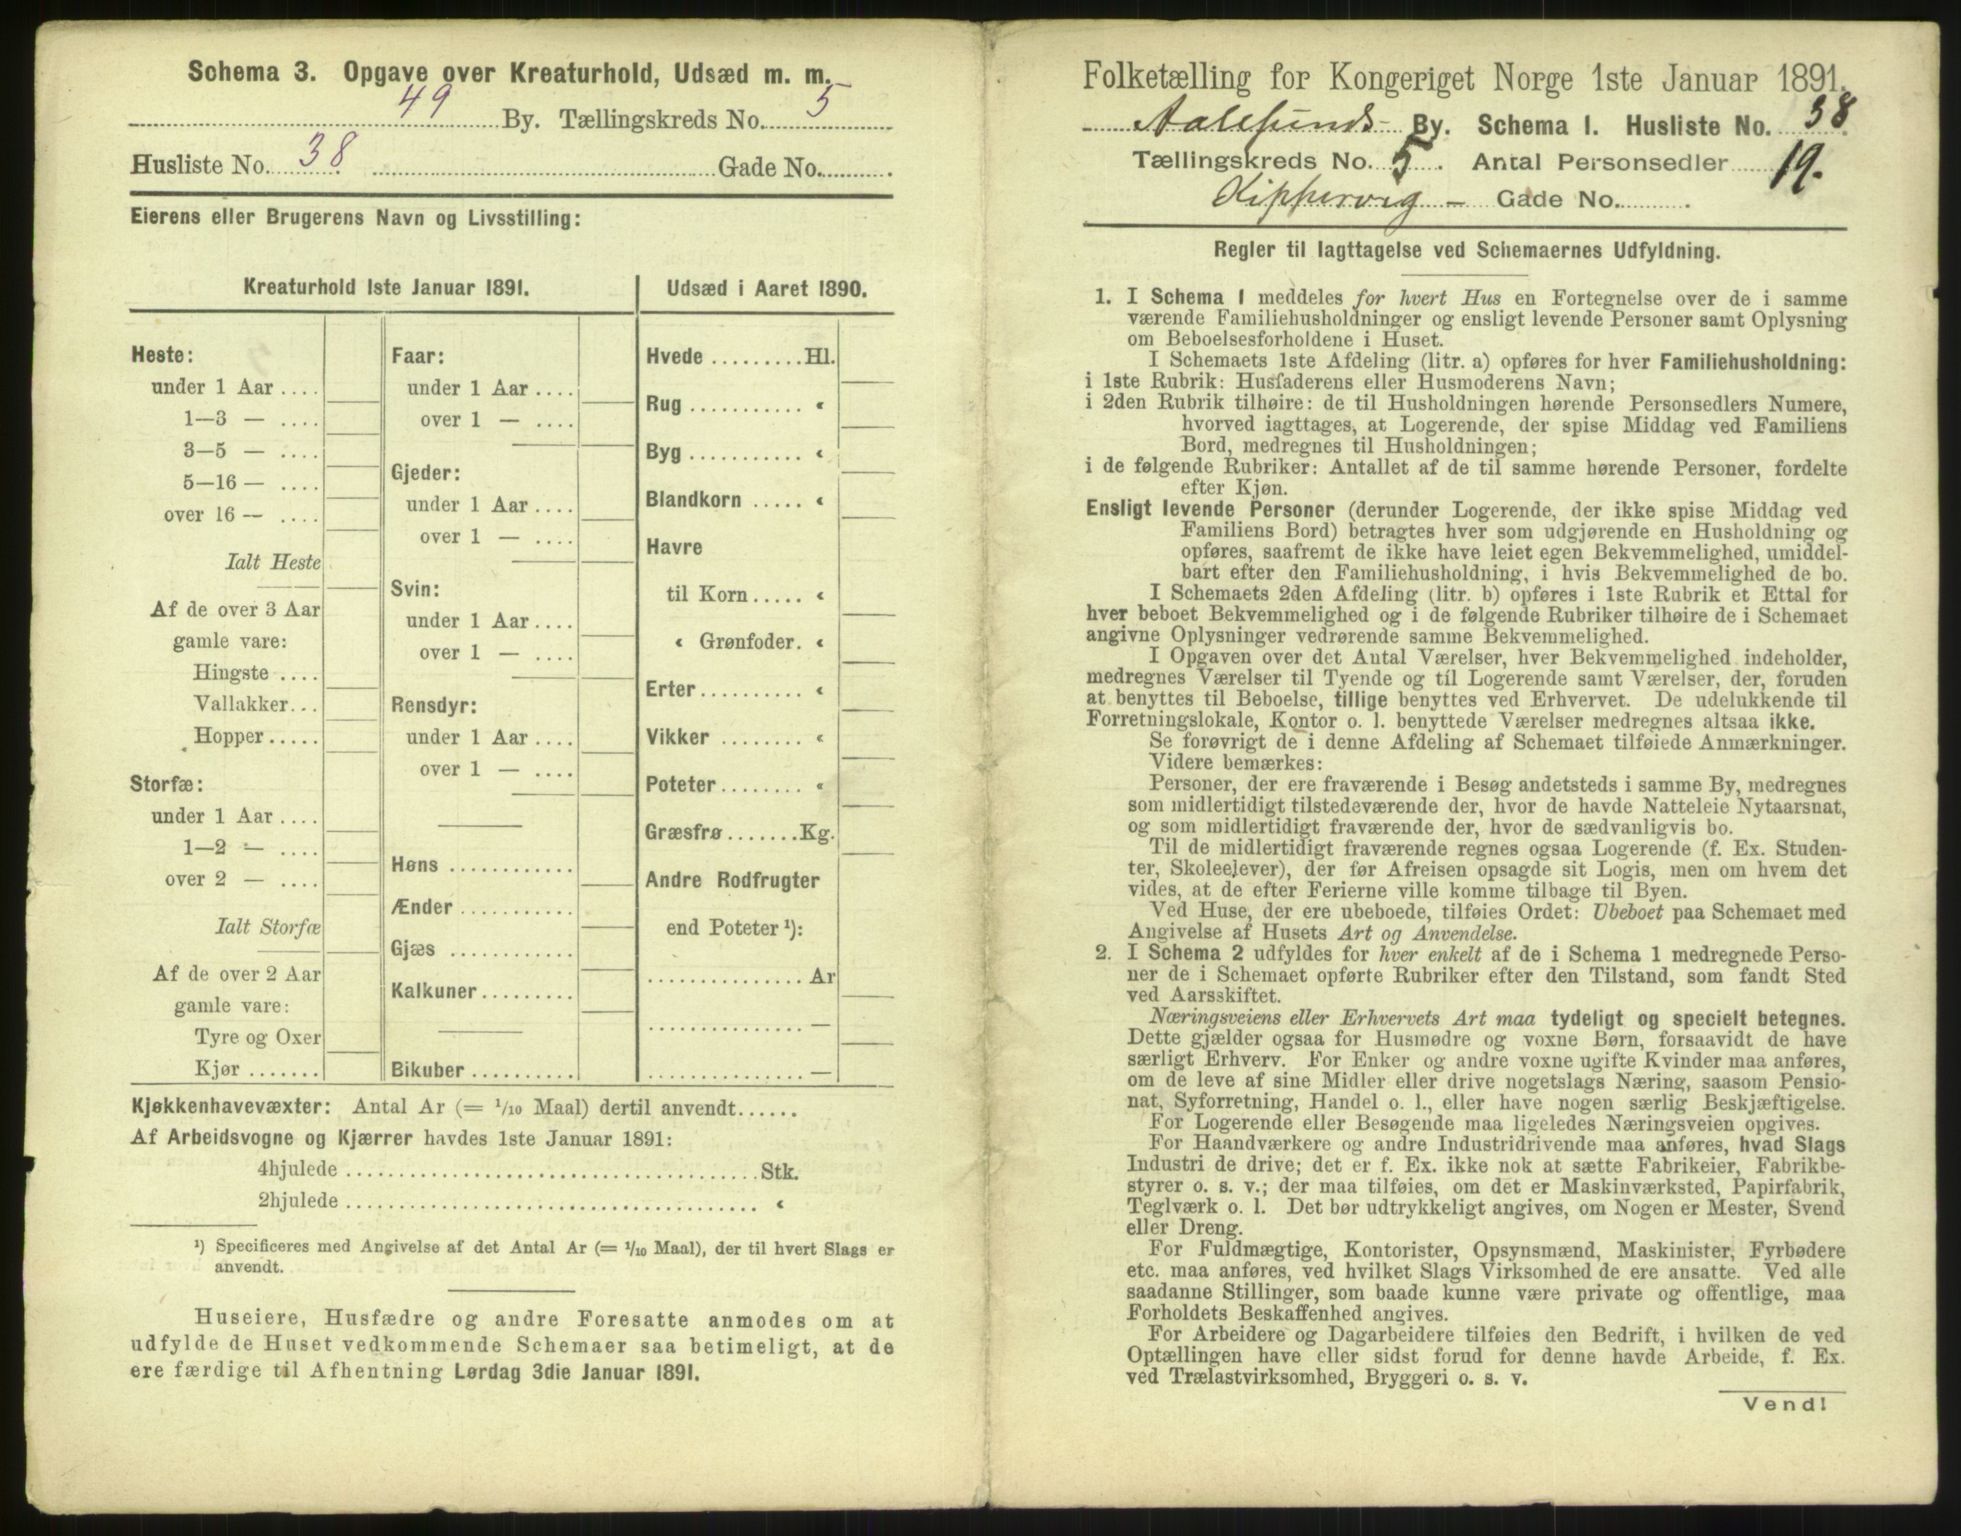 Schema 3. Opgave over Kreaturhold, Udsæd m. m.
49 By. Tællingskreds No. 5
Husliste No. 38. Gade No.
Eierens eller Brugerens Navn og Livsstilling:
Kreaturhold 1ste Januar 1891.
Heste:
under 1 Aar ....
1—3 — ....
3—5 — ....
5—16 — ....
over 16 — ....
Ialt Heste
Af de over 3 Aar
gamle vare:
Hingste ....
Vallakker...
Hopper.....
Storfæ:
under 1 Aar ....
1—2 — ....
over 2 — ....
Ialt Storfæ
Af de over 2 Aar
gamle vare:
Tyre og Oxer
Kjør .......
Faar:
under 1 Aar ....
over 1 — ....
Gjeder:
under 1 Aar ....
over 1 — ....
Svin:
under 1 Aar ....
over 1 — ....
Rensdyr:
under 1 Aar ....
over 1 — ....
Høns ............
Ænder ...........
Gjæs ............
Kalkuner.........
Bikuber ..........
Udsæd i Aaret 1890.
Hvede .........Hl.
Rug ........... «
Byg ........... «
Blandkorn ..... «
Havre
til Korn ..... «
« Grønfoder. «
Erter.......... «
Vikker ........ «
Poteter........ «
Græsfrø.......Kg.
Andre Rodfrugter
end Poteter ¹):
............... Ar
............... —
............... —
Kjøkkenhavevæxter: Antal Ar (= 1/10 Maal) dertil anvendt......
Af Arbeidsvogne og Kjærrer havdes 1ste Januar 1891:
4hjulede ........................................ Stk.
2hjulede ........................................ «
¹) Specificeres med Angivelse af det Antal Ar (= 1/10 Maal), der til hvert Slags er
anvendt.
Huseiere, Husfædre og andre Foresatte anmodes om at
udfylde de Huset vedkommende Schemaer saa betimeligt, at de
ere færdige til Afhentning Lørdag 3die Januar 1891.
Folketælling for Kongeriget Norge 1ste Januar 1891.
Aalesunds By. Schema I. Husliste No. 38.
Tællingskreds No. 5. Antal Personsedler 19.
Kippervig — Gade No.
Regler til Iagttagelse ved Schemaernes Udfyldning.
1. I Schema 1 meddeles for hvert Hus en Fortegnelse over de i samme
værende Familiehusholdninger og ensligt levende Personer samt Oplysning
om Beboelsesforholdene i Huset.
I Schemaets 1ste Afdeling (litr. a) opføres for hver Familiehusholdning:
i 1ste Rubrik: Husfaderens eller Husmoderens Navn;
i 2den Rubrik tilhøire: de til Husholdningen hørende Personsedlers Numere,
hvorved iagttages, at Logerende, der spise Middag ved Familiens
Bord, medregnes til Husholdningen;
i de følgende Rubriker: Antallet af de til samme hørende Personer, fordelte
efter Kjøn.
Ensligt levende Personer (derunder Logerende, der ikke spise Middag ved
Familiens Bord) betragtes hver som udgjørende en Husholdning og
opføres, saafremt de ikke have leiet egen Bekvemmelighed, umiddel-
bart efter den Familiehusholdning, i hvis Bekvemmelighed de bo.
I Schemaets 2den Afdeling (litr. b) opføres i 1ste Rubrik et Ettal for
hver beboet Bekvemmelighed og i de følgende Rubriker tilhøire de i Schemaet
angivne Oplysninger vedrørende samme Bekvemmelighed.
I Opgaven over det Antal Værelser, hver Bekvemmelighed indeholder,
medregnes Værelser til Tyende og til Logerende samt Værelser, der, foruden
at benyttes til Beboelse, tillige benyttes ved Erhvervet. De udelukkende til
Forretningslokale, Kontor o. l. benyttede Værelser medregnes altsaa ikke.
Se forøvrigt de i denne Afdeling af Schemaet tilføiede Anmærkninger.
Videre bemærkes:
Personer, der ere fraværende i Besøg andetsteds i samme By, medregnes
som midlertidigt tilstedeværende der, hvor de havde Natteleie Nytaarsnat,
og som midlertidigt fraværende der, hvor de sædvanligvis bo.
Til de midlertidigt fraværende regnes ogsaa Logerende (f. Ex. Studen-
ter, Skoleelever), der før Afreisen opsagde sit Logis, men om hvem det
vides, at de efter Ferierne ville komme tilbage til Byen.
Ved Huse, der ere ubeboede, tilføies Ordet: Ubeboet paa Schemaet med
Angivelse af Husets Art og Anvendelse.
2. I Schema 2 udfyldes for hver enkelt af de i Schema 1 medregnede Perso-
ner de i Schemaet opførte Rubriker efter den Tilstand, som fandt Sted
ved Aarsskiftet.
Næringsveiens eller Erhvervets Art maa tydeligt og specielt betegnes.
Dette gjælder ogsaa for Husmødre og voxne Børn, forsaavidt de have
særligt Erhverv. For Enker og andre voxne ugifte Kvinder maa anføres,
om de leve af sine Midler eller drive nogetslags Næring, saasom Pensio-
nat, Syforretning, Handel o. l., eller have nogen særlig Beskjæftigelse.
For Logerende eller Besøgende maa ligeledes Næringsveien opgives.
For Haandværkere og andre Industridrivende maa anføres, hvad Slags
Industri de drive; det er f. Ex. ikke nok at sætte Fabrikeier, Fabrikbe-
styrer o. s. v.; der maa tilføies, om det er Maskinværksted, Papirfabrik,
Teglværk o. l. Det bør udtrykkeligt angives, om Nogen er Mester, Svend
eller Dreng.
For Fuldmægtige, Kontorister, Opsynsmænd, Maskinister, Fyrbødere
etc. maa anføres, ved hvilket Slags Virksomhed de ere ansatte. Ved alle
saadanne Stillinger, som baade kunne være private og offentlige, maa
Forholdets Beskaffenhed angives.
For Arbeidere og Dagarbeidere tilføies den Bedrift, i hvilken de ved
Optællingen have eller sidst forud for denne havde Arbeide, f. Ex.
ved Trælastvirksomhed, Bryggeri o. s. v.
Vend!